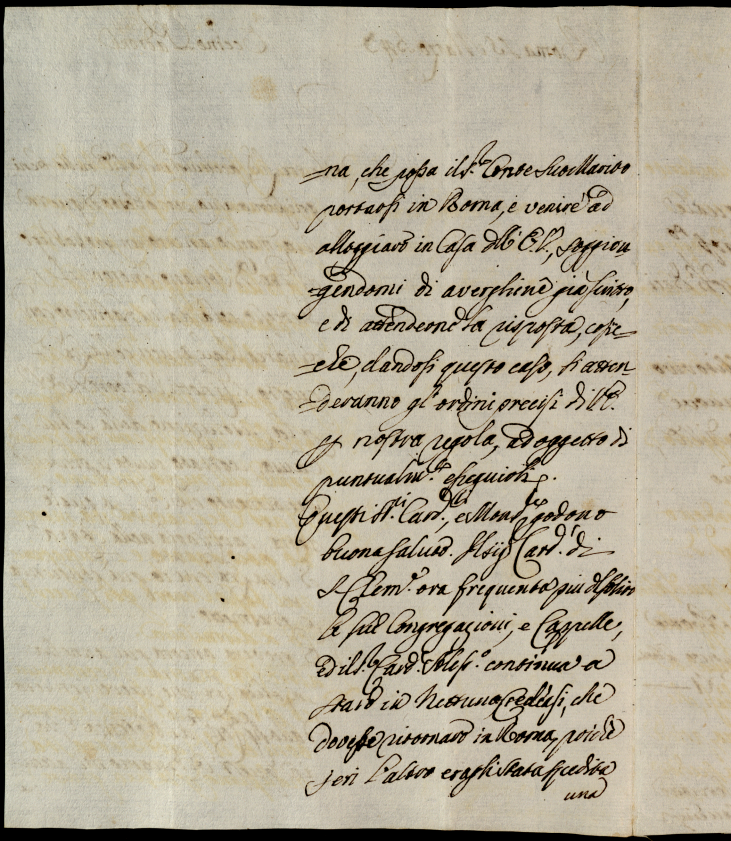 =na, che possa il S.r Conte Suo Marito
portarsi in Roma, e venire ad
alloggiare in Casa dell' E.V., soggion
=gendomi di averghene già scritto,
e di attenderne la risposta, cosi=
=che, dandosi questo caso, si atten=
=deranno gl' ordini precisi di V.E.
p nostra regola, ad oggetto di
puntualm.e eseguirli.
Questi SS.ri Card.li, e Mons.re godono
buona salute. Il Sig.r Card.l di
S. Clem.e ora frequenta piu del solito
le sue Congregazioni, e Cappelle,
Ed il S.r Card. Aless.o continua a
stare in Nettuno. Credesi, che
dovesse ritornare in Roma, poiche
jeri l'altro eragli stata spedita
una